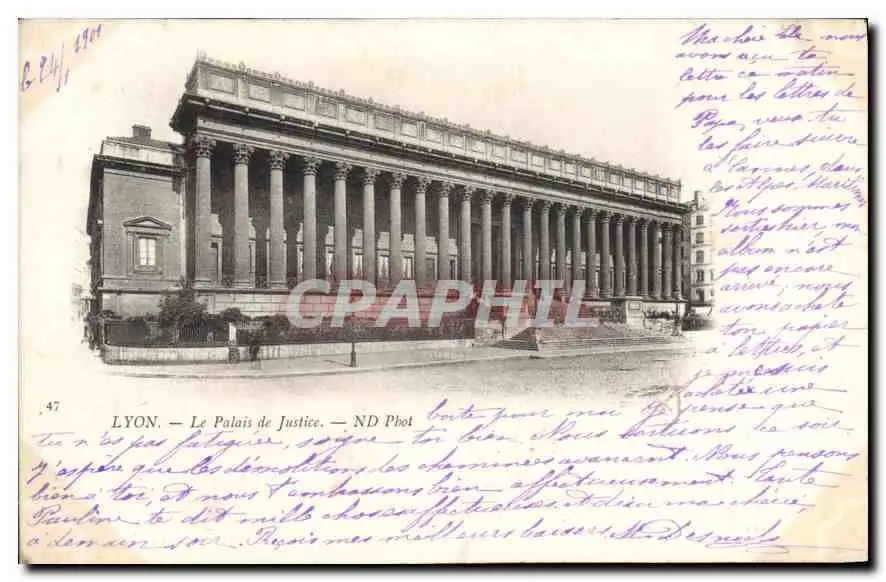 le 24/5 1901
Ma chère nous
avons reçu ta
lettre ce matin
pour les lettres de
Papa, veux tu
les faire suivre
à Vannes, dans
les Alpes Maritim
Nous sommes
sortis hier, mon
album n'est
pas encore
arrivé, nous
avons acheté
ton papier
à lettres, et
je me suis
achetée une
CARTAGRAPH
47
LYON. — Le Palais de Justice. — ND Phot
boite pour moi Je pense que
tu n'as pas fatiguée, soigne toi bien. Nous partirons ce soir.
J'espère que les démolitions des cheminées avancent. Nous pensons
bien à toi, et nous t'embrassons bien affectueusement. Tante
Pauline te dit mille choses affectueuses. Adieu ma chérie,
à demain soir. Reçois mes meilleurs baisers.